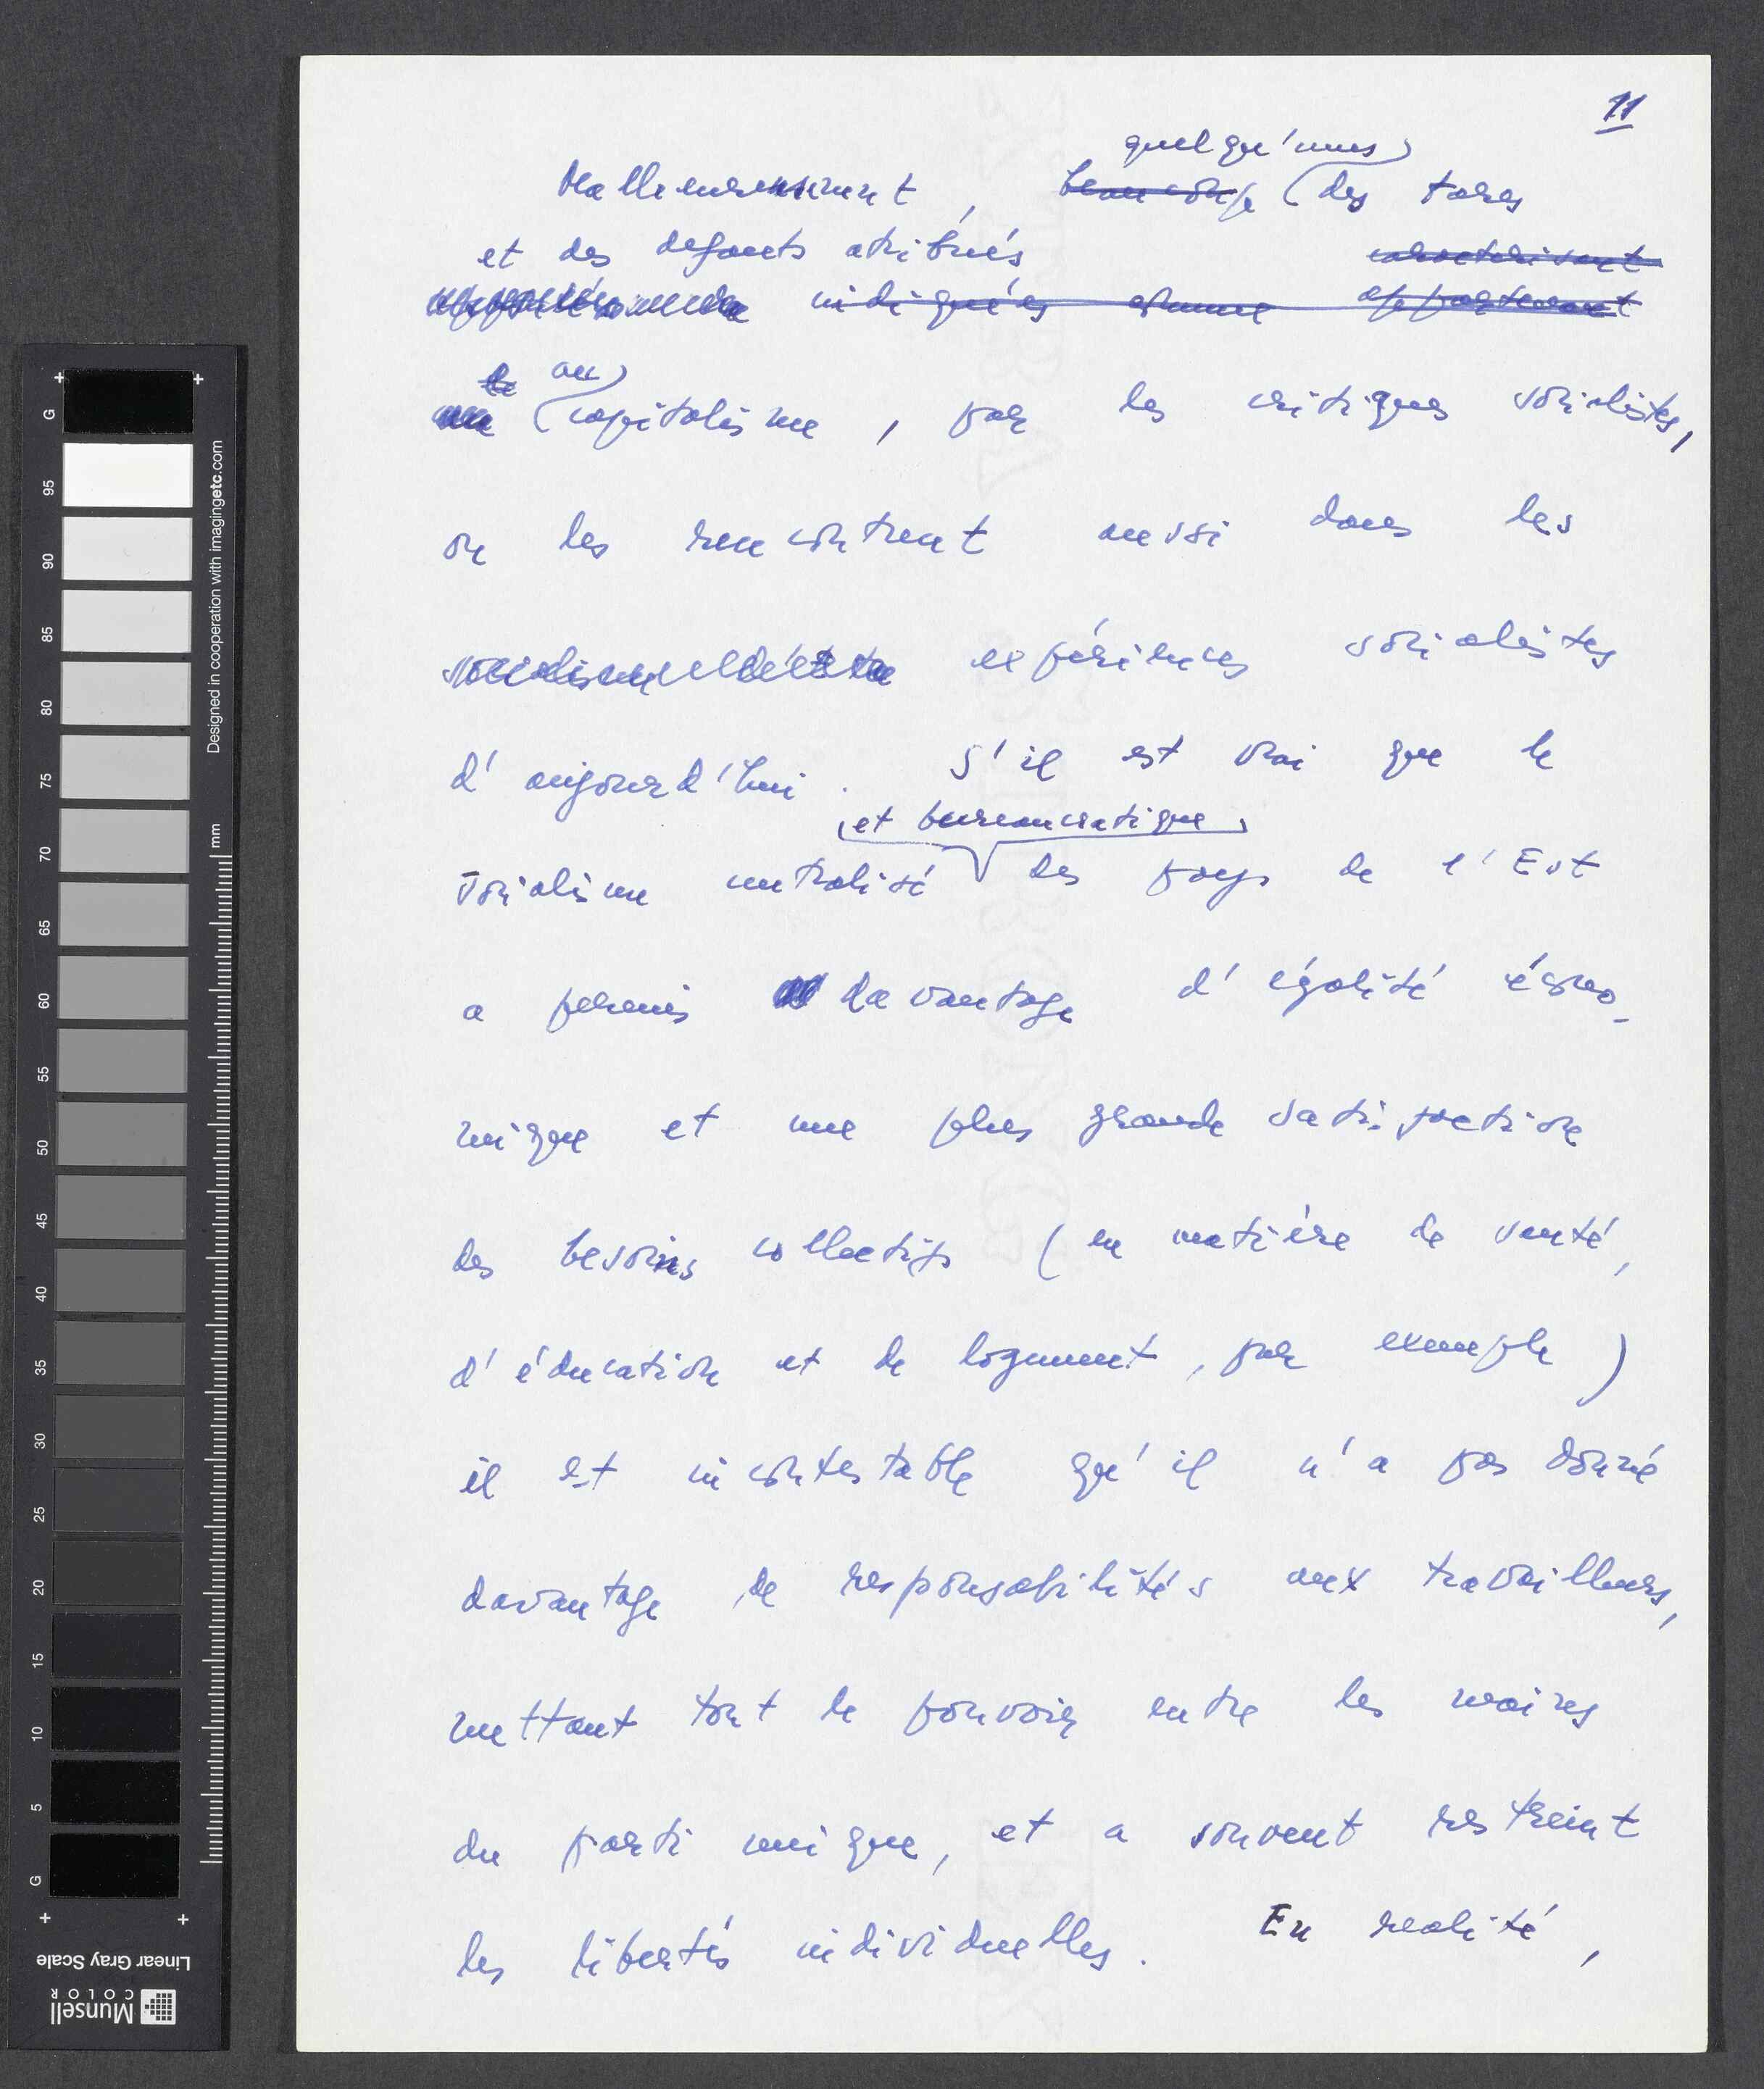 11
quelqu'unes
Malheureusement, beaucoup des tares
et des defauts atribués caracterisant
indiqués comme appartenant
le au
capitalisme, par les critiques socialistes,
on les rencontrent aussi dans les
expériences socialistes
d'aujourd'hui. S'il est vrai que le
et bureaucratique
socialisme centralisé des pays de l'Est
a permis davantage d'égalité écono-
mique et une plus grande satisfaction
des besoins collectifs (en matière de santé,
d'éducation et de logement, par exemple)
il est incontestable qu'il n'a pas donné
davantage de responsabilités aux travailleurs,
mettant tout le pouvoir entre les mains
du parti unique, et a souvent restreint
les libertés individuelles. En realité,
G
95
90
85
80
75
70
65
60
55
50
45
40
35
30
25
20
15
10
5
G
mm
Designed in cooperation with imagingetc.com
Linear Gray Scale
Munsell
COLOR